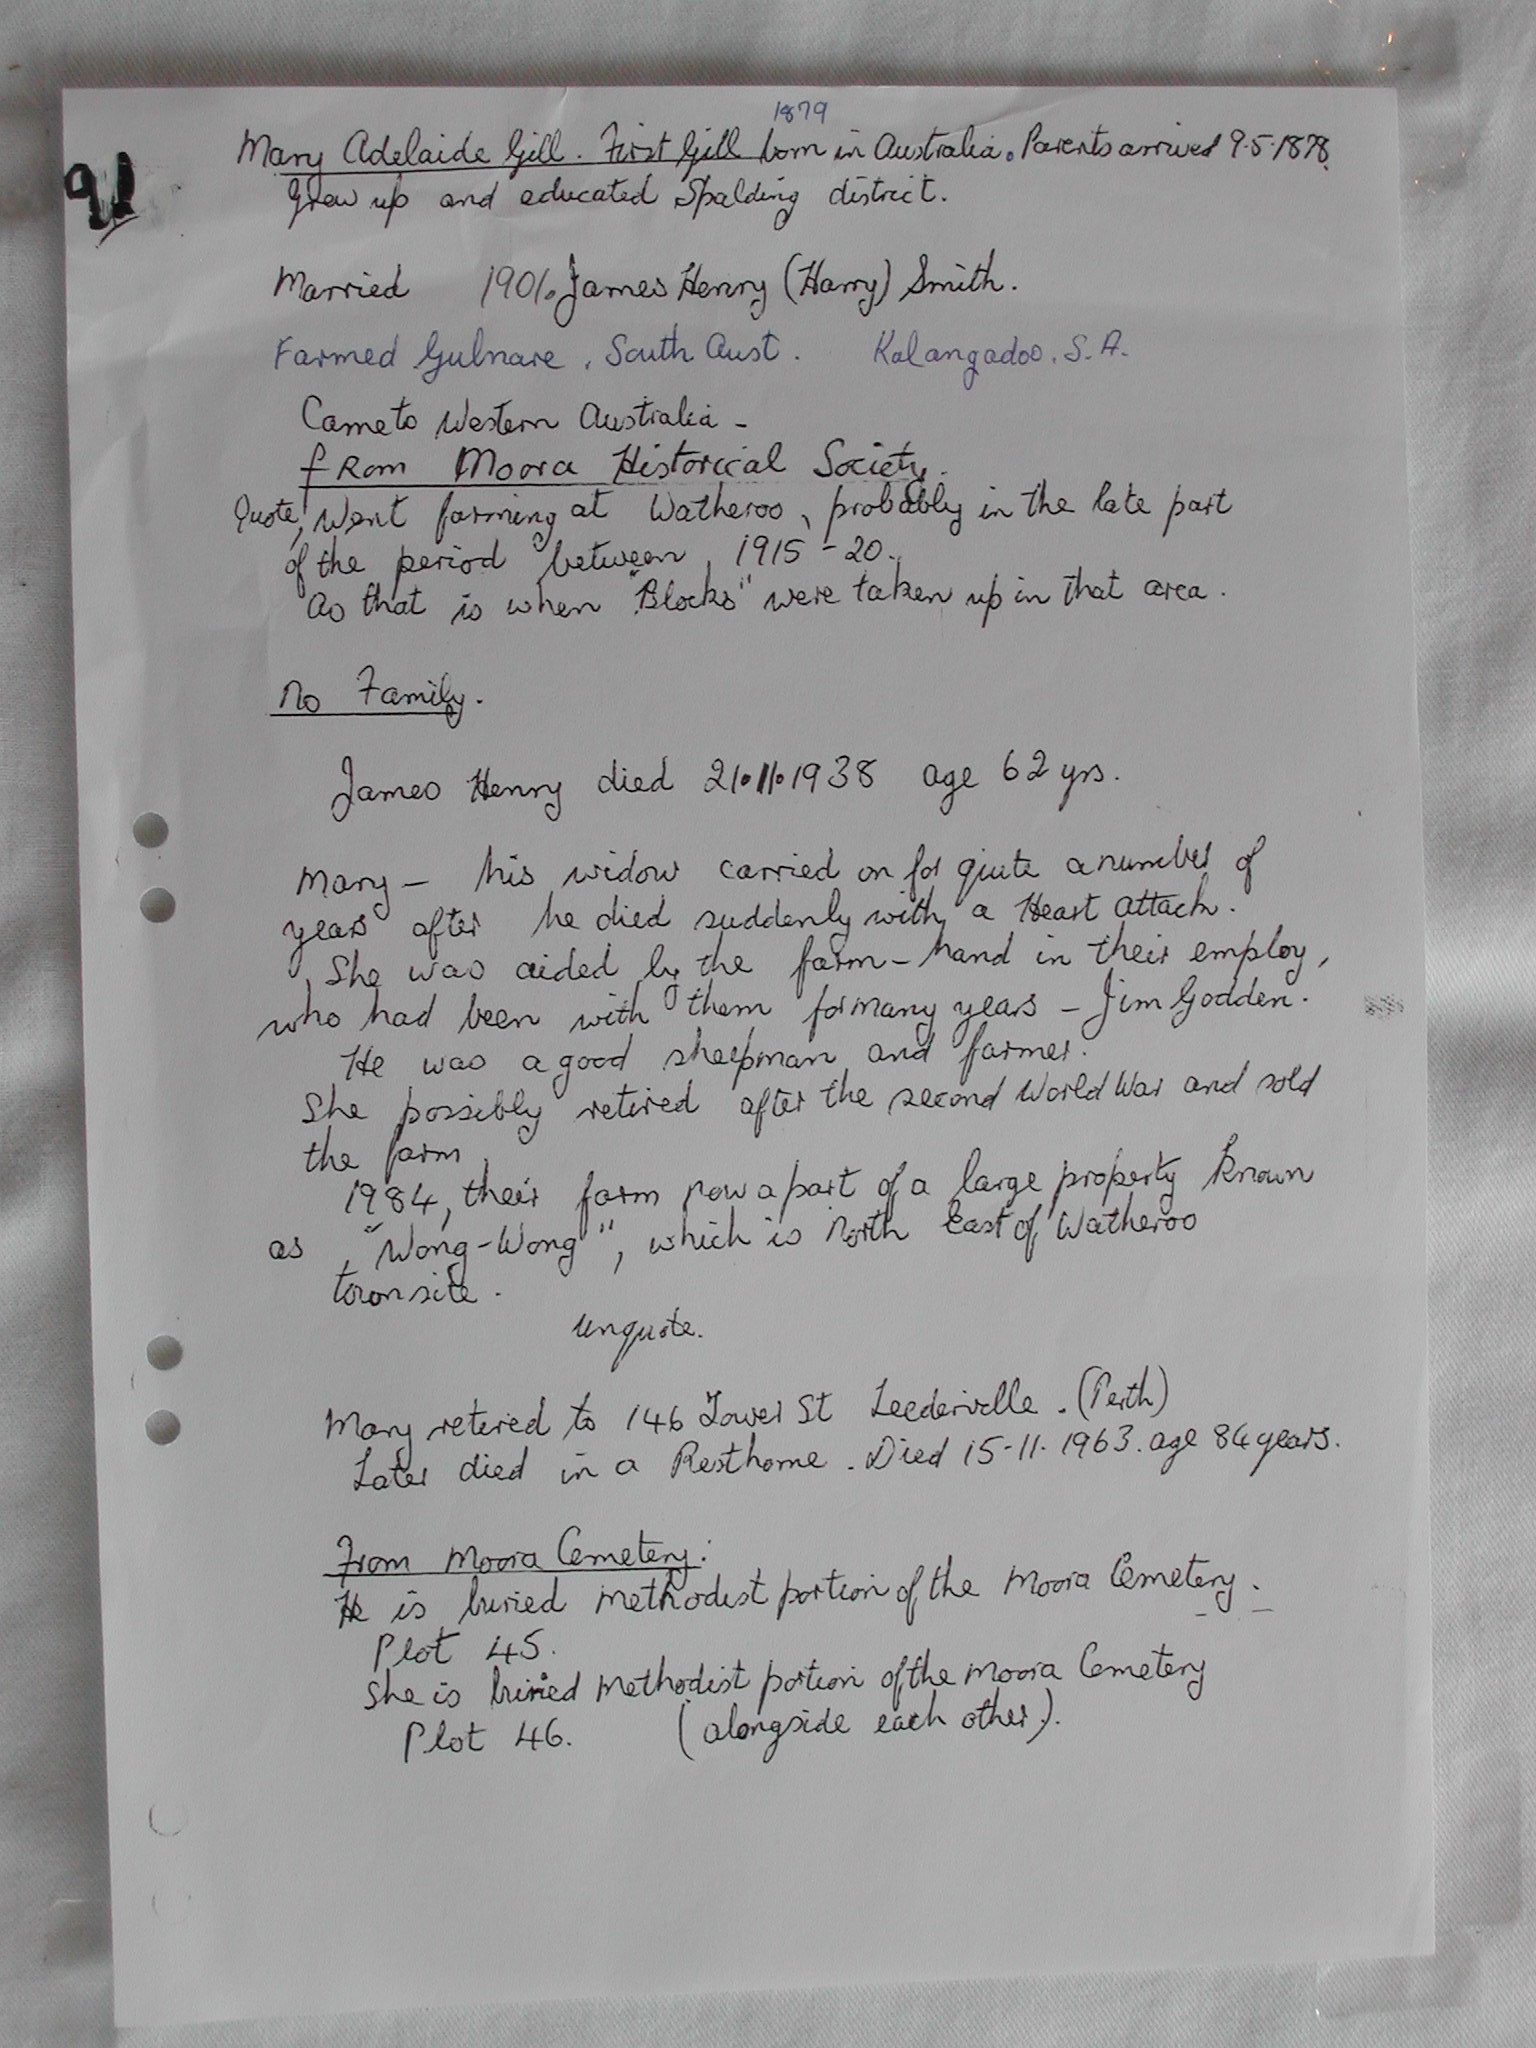 1879
Mary Adelaide Gill. First Gill born in Australia. Parents arrived 9.5.1878
91
Grew up and educated Spalding district.
Married 1901. James Henry (Harry) Smith.
Farmed Gulnare, South Aust. Kalangadoo. S.A.
Came to Western Australia -
from Moora Historical Society.
Quote, Went farming at Watheroo, probably in the late part
of the period between 1915-20.
As that is when "Blocks" were taken up in that area.
No Family.
James Henry died 21.11.1938 age 62 yrs.
Mary - his widow carried on for quite a number of
years after he died suddenly with a Heart attack.
She was aided by the farm-hand in their employ,
who had been with them for many years - Jim Godden.
He was a good sheepman and farmer.
She possibly retired after the second World War and sold
the farm
1984, their farm now a part of a large property known
as "Wong-Wong", which is North East of Watheroo
townsite.
unquote.
Mary retired to 146 Tower St Leederville. (Perth)
Later died in a Resthome. Died 15-11-1963. age 84 years.
From Moora Cemetery:
He is buried Methodist portion of the Moora Cemetery.
Plot 45.
She is buried Methodist portion of the Moora Cemetery
Plot 46. (alongside each other).